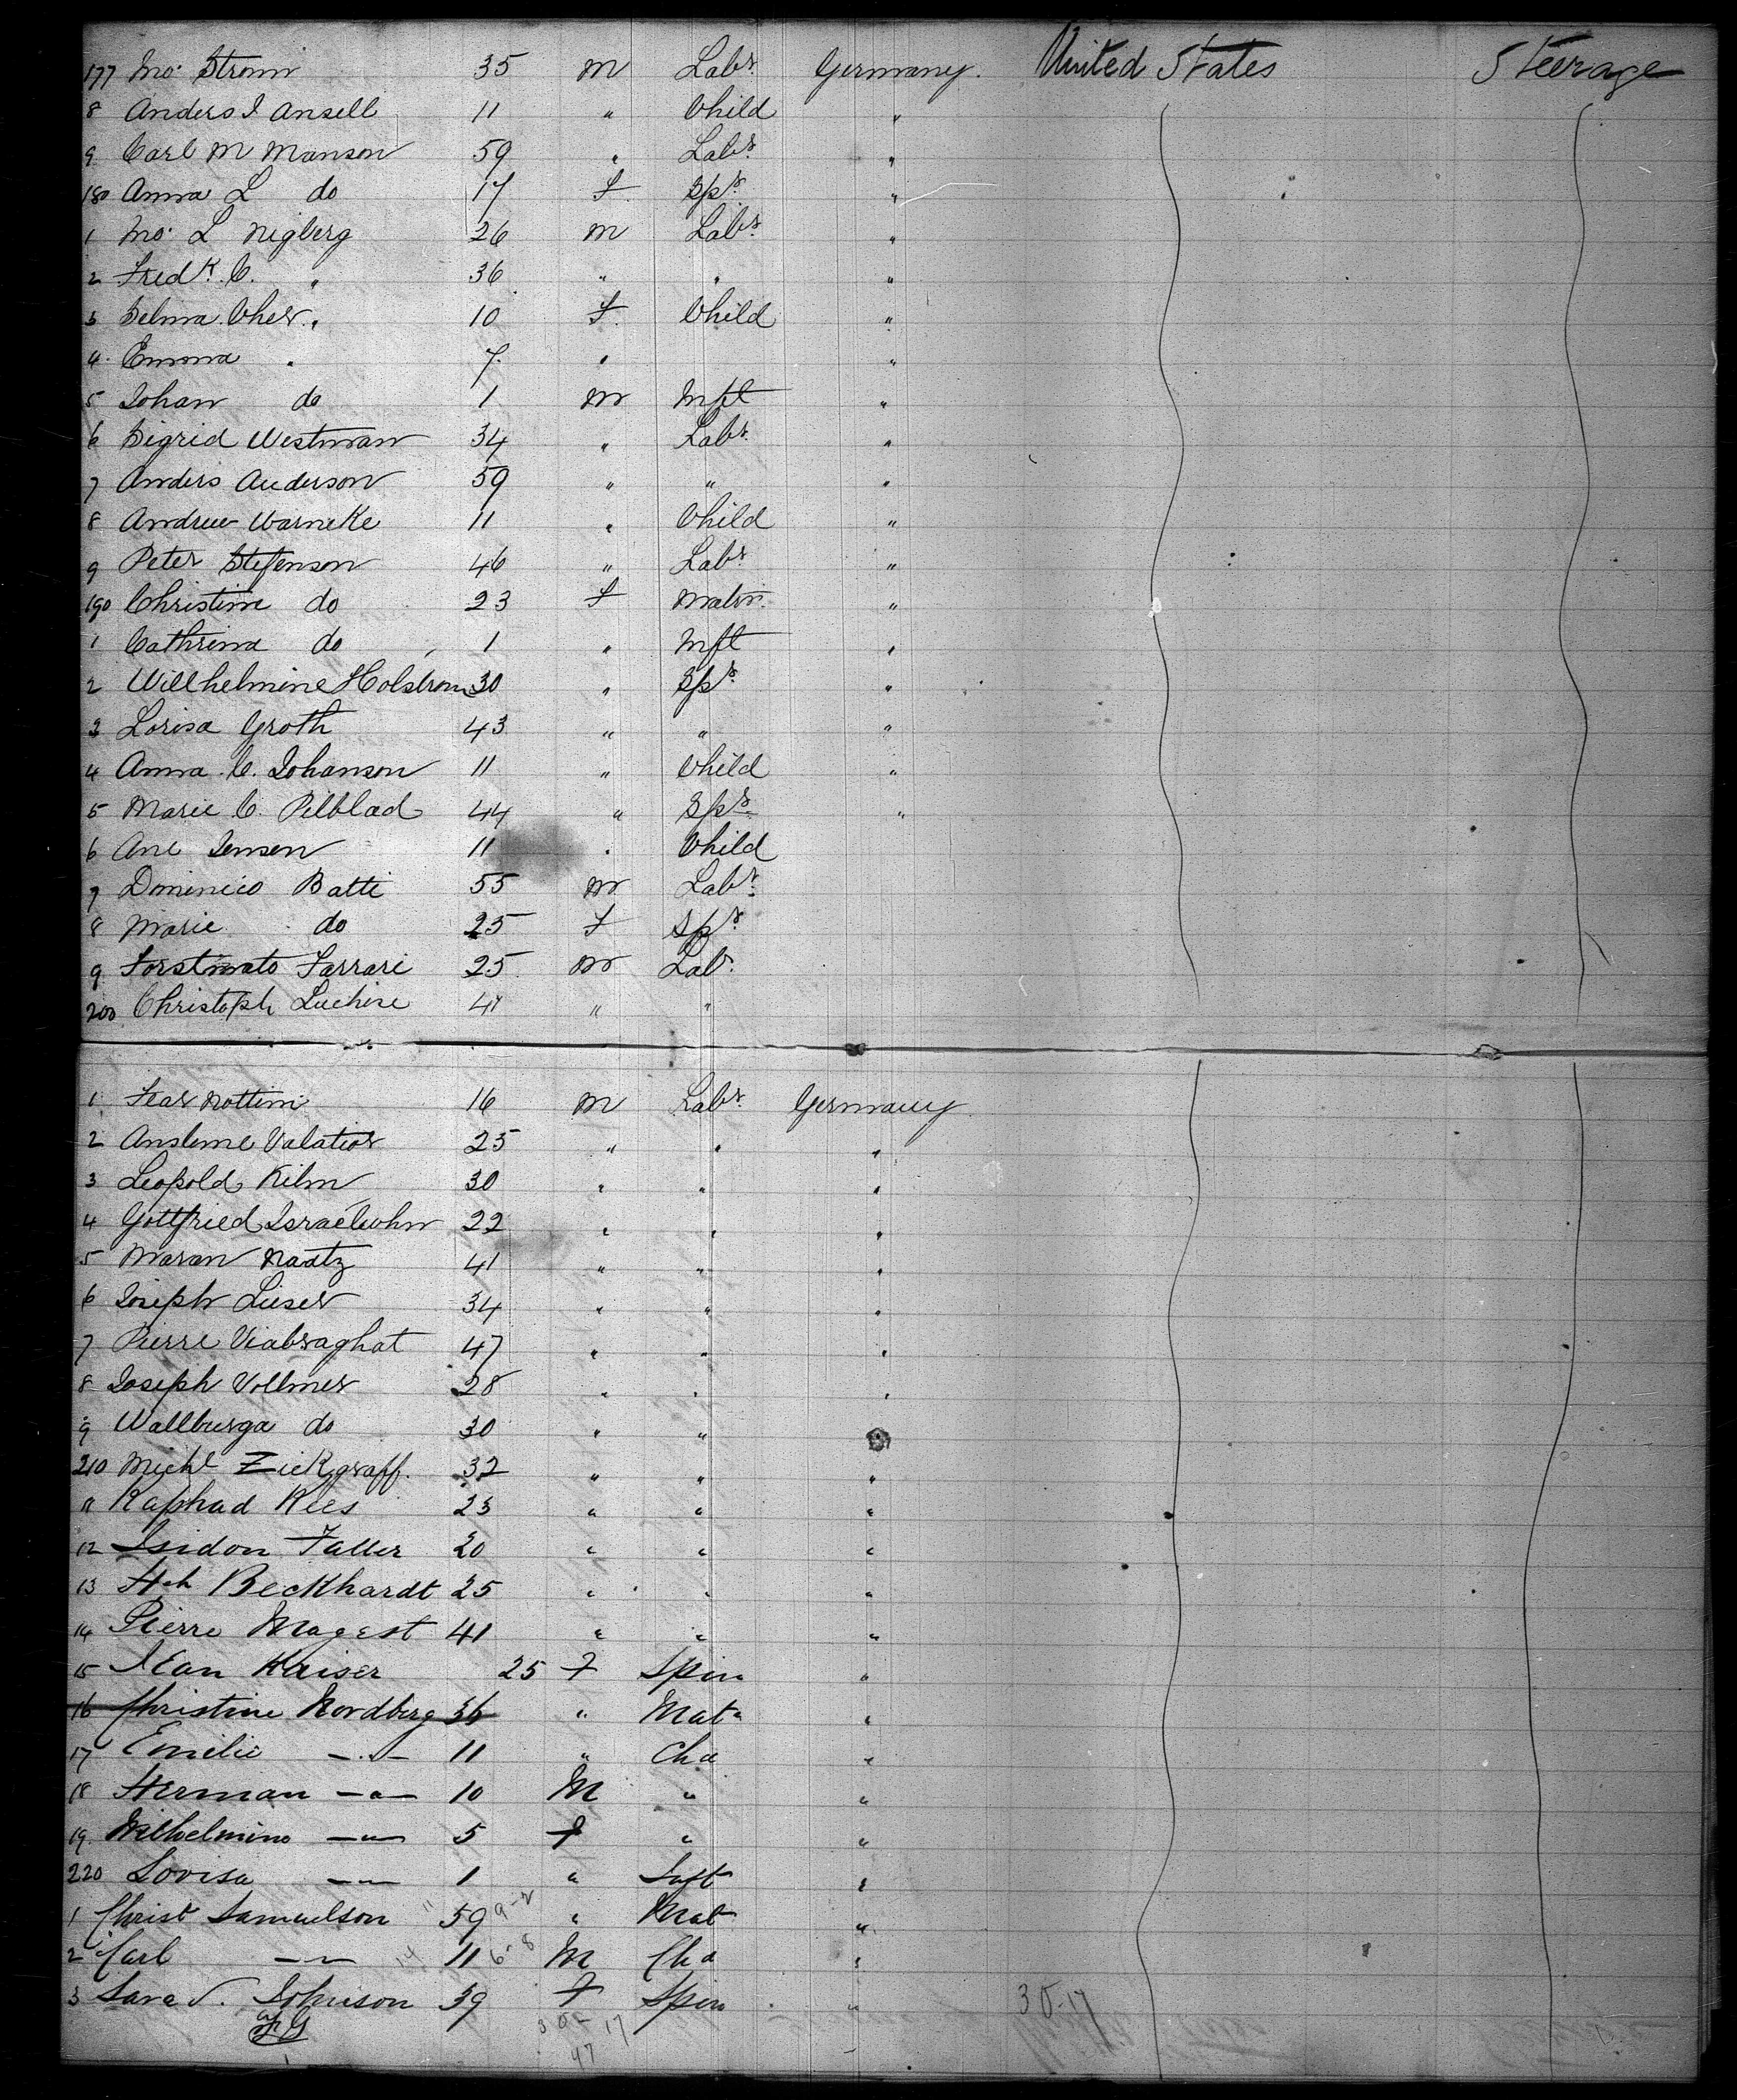 177 Mo. Strom 35 M Labr. Germany. United States Steerage
8 Anders I Ansell 11 " Child "
9 Carl M Manson 59 " Labr. "
180 Anna L do 17 F Spr. "
1 Mo. L Nigberg 26 M Labr. "
2 Fredk. C. " 36 " " "
3 Selma Cher. " 10 F. Child "
4 Emma " 7 " "
5 Johan do 1 M Inft "
6 Sigrid Westman 34 " Labr. "
7 Anders Anderson 59 " " "
8 Andrew Warneke 11 " Child "
9 Peter Stefenson 46 " Labr. "
190 Christine do 23 F Matrn. "
1 Cathrina do 1 " Inft "
2 Willhelmine Holstrom 30 " Spr. "
3 Lorisa Groth 43 " " "
4 Anna C. Johanson 11 " Child "
5 Marie C. Pilblad 44 " Spr. "
6 Ane Jensen 11 " Child
7 Dominico Batti 55 M Labr.
8 Marie do 25 F Spr.
9 Forstinato Farrari 25 M Lab.
200 Christoph Luchine 41 " "
1 Fear Nottini 16 M Labr. Germany
2 Ansleme Valatior 25 " " "
3 Leopold Kilm 30 " " "
4 Gottfried Israelsohn 22 " " "
5 Maran Naatz 41 " " "
6 Joseph Lieser 34 " " "
7 Pierre Viabraghat 47 " " "
8 Joseph Vollmer 28 " " "
9 Wallburga do 30 " "
210 Michl Zickgraff. 32 " " "
11 Raphad Rees 23 " " "
12 Isidon Faller 20 " " "
13 Hch Beckhardt 25 " " "
14 Pierre Magest 41 " " "
15 Jean Kaiser 25 F Spin "
16 Christine Nordberg 36 " Mat "
17 Emilie — " — 11 " Chd "
18 Herman — " — 10 M " "
19 Wilhelmine — " — 5 F " "
220 Lovisa — " — 1 " Inft "
1 Christ Samuelson 11 59 9-2 " Mat "
2 Carl — " — 14 11 6-8 M Chd "
3 Sara S. Johnson 39 F Spin " 30-17
30-17
47